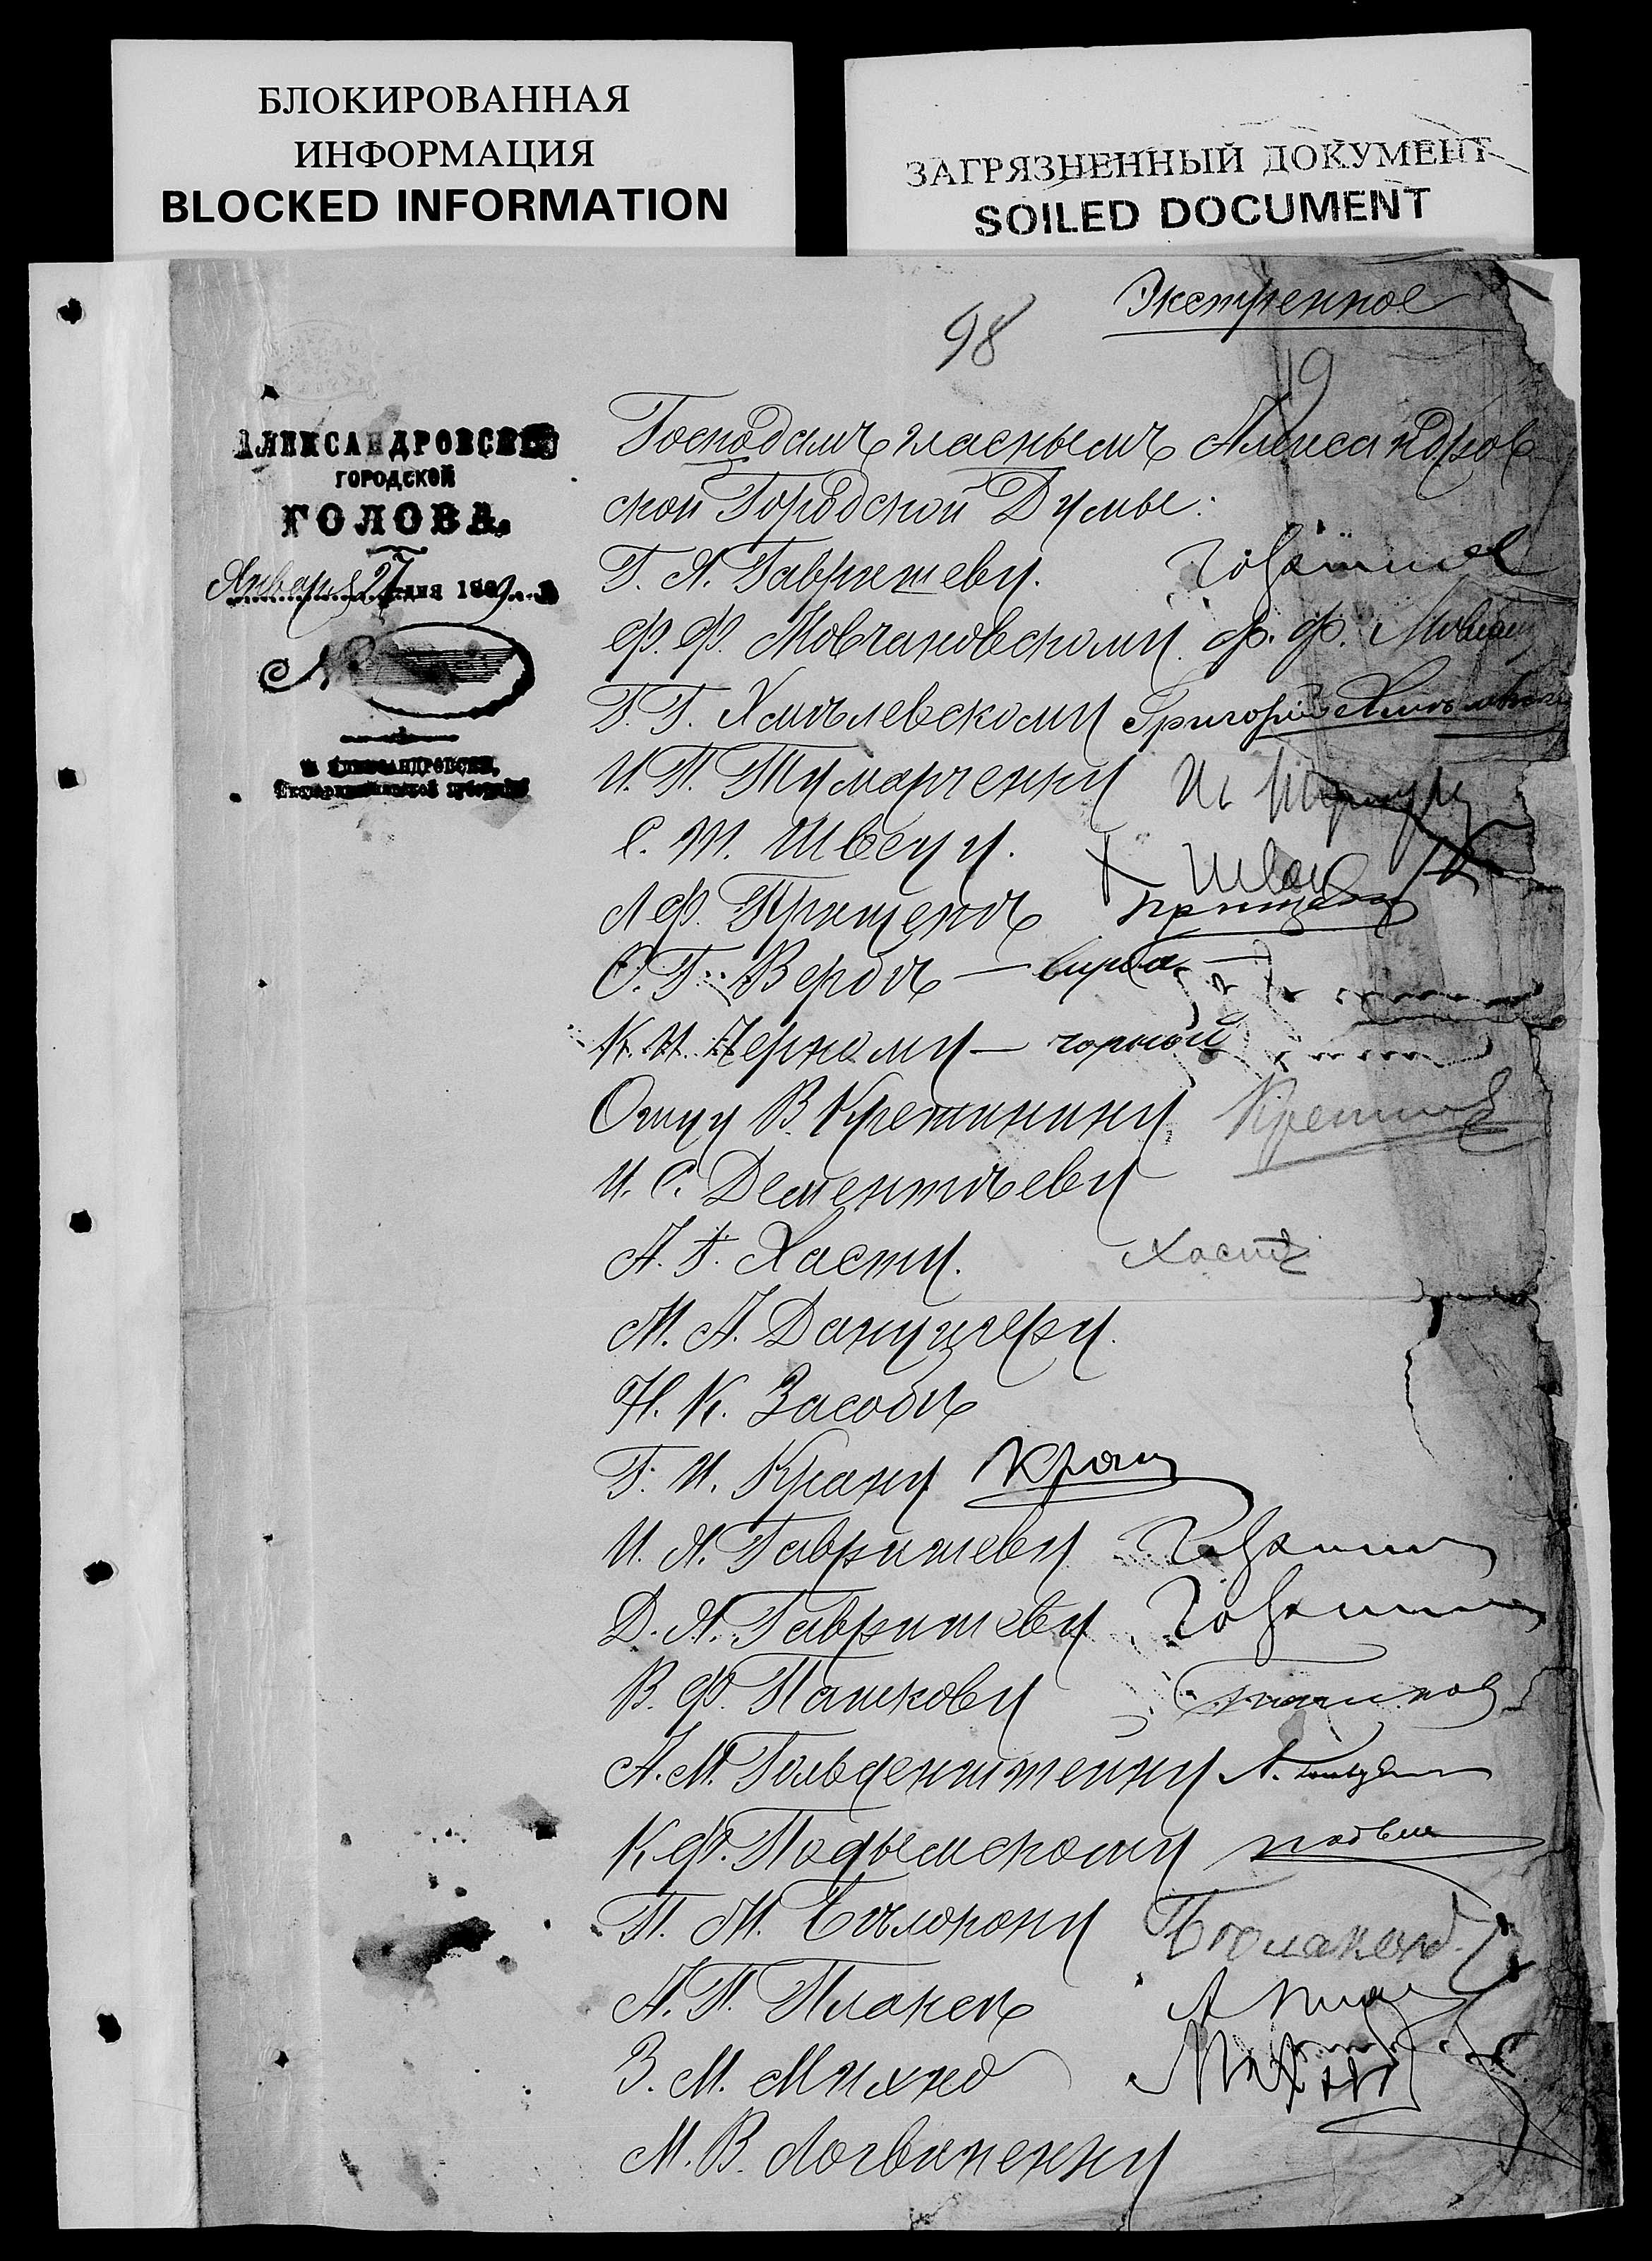 БЛОКИРОВАННАЯ
ИНФОРМАЦИЯ
BLOCKED INFORMATION
ЗАГРЯЗНЕННЫЙ ДОКУМЕНТ
SOILED DOCUMENT
Экстренное
98
19
АЛЕКСАНДРОВСКІЙ
ГОРОДСКОЙ
ГОЛОВА.
Января 27 дня 1889
№
Г. АЛЕКСАНДРОВСКЪ,
Екатеринославской губерніи
Господамъ гласнымъ Александров-
ской Городской Думы:
Г. Я. Гавришеву.
Ф. Ф. Мовчановскому. Ф. Ф. Мовчан
Г. Г. Хмѣлевскому Григорій Хмѣлевскій
И. П. Тумарченку
С. Т. Швецу. Швец
Л. Ф. Прищепѣ Прищепа
С. Г. Вербѣ — верба —
К. И. Черному — чорный
Отцу В. Кретинину Кретин
И. С. Дементьеву
А. Г. Хасту. Хастъ
М. А. Данцигеру.
Н. К. Засобѣ
Г. И. Крану Кран
И. Я. Гавришеву
Д. Я. Гавришеву
В. Ф. Пашкову Пашков
А. М. Гольденштейну А.
К. Ф. Подъемскому подъем
П. М. Бѣлокону Бѣлаконь
А. П. Плаксѣ А Плак
З. М. Михно Михно
М. В. Логвиненку